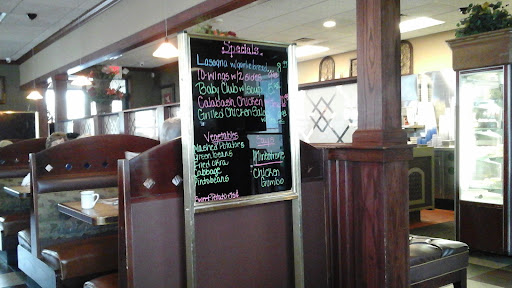 Specials
Lasagna w/garlic bread
10-wings w/2 sides
Baby Club w/soup
Calabash Chicken
Grilled Chicken Salad
Vegetables
Mashed Potatoes
Green beans
Fried Okra
Cabbage
Pintobeans
Sweet Potato
Minestrone
Chicken
Gumbo